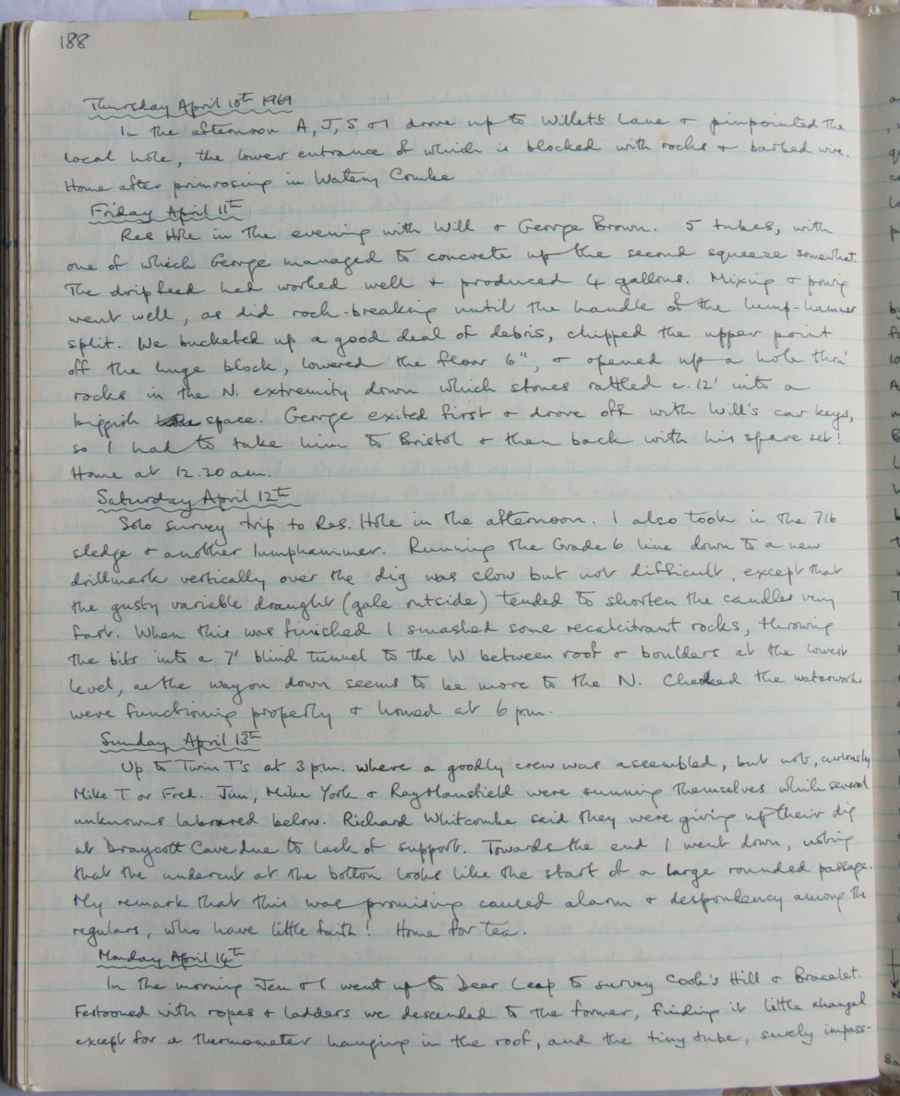 188
Thursday April 10th 1969
In the afternoon A, J, S & I drove up to Willet's Lane & pinpointed the
local hole, the lower entrance of which is blocked with rocks & barbed wire.
Home after primrosing in Watery Combe
Friday April 11th
Res Hole in the evening with Will & George Brown. 5 tubes, with
one of which George managed to concrete up the second squeeze somewhat.
The drip feed had worked well & produced 4 gallons. Mixing &
went well, as did rock-breaking until the handle of the lump-hammer
split. We bucketed up a good deal of debris, chipped the upper point
off the huge block, lowered the floor 6", & opened up a hole thro'
rocks in the N. extremity down which stones rattled c. 12' into a
biggish space. George exited first & drove off with Will's car keys,
so I had to take him to Bristol & then back with his spare set!
Home at 12.20 am.
Saturday April 12th
Solo survey trip to Res. Hole in the afternoon. I also took in the 7lb
sledge & another lumphammer. Running the Grade 6 line down to a new
drillmark vertically over the dig was slow but not difficult, except that
the gusty variable draught (gale outside) tended to shorten the candles very
fast. When this was finished I smashed some recalcitrant rocks, throwing
the bits into a 7' blind tunnel to the W between roof & boulders at the lowest
level, as the way on down seems to be more to the N. Checked the waterworks
were functioning properly & homed at 6 pm.
Sunday April 13th
Up to Twin T's at 3 pm. where a goodly crew was assembled, but not, curiously
Mike T or Fred. Jim, Mike York & Ray Mansfield were sunning themselves while several
unknowns laboured below. Richard Whitcombe said they were giving up their dig
at Draycott Cave due to lack of support. Towards the end I went down, noting
that the undercut at the bottom looks like the start of a large rounded passage.
My remark that this was promising caused alarm & despondency among the
regulars, who have little faith! Home for tea.
Monday April 14th
In the morning Jen & I went up to Dear Leap to survey Cook's Hill & Bracelet.
Festooned with ropes & ladders we descended to the former, finding it little changed
except for a thermometer hanging in the roof, and the tiny tube, surely impass-